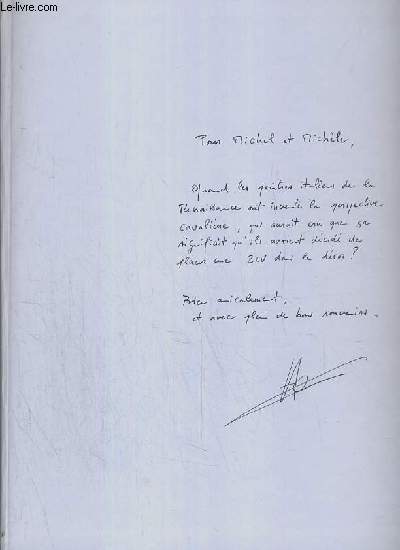 Le-livre.com
Pour Michel et Michèle,
Quand les peintres italiens de la
Renaissance ont inventé la perspective
cavalière, qui aurait cru que ça
signifiait qu'ils avaient décidé de
placer une 2CV dans le décor ?
Bien amicalement,
et avec plein de bons souvenirs.